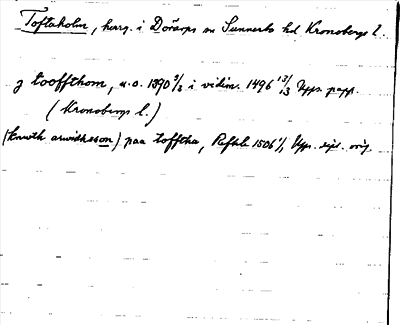 Toftaholm, herrg. i Dörarps sn Sunnerbo hd Kronobergs l.
j toofthom, u.o. 1390 5/2 i vidim. 1496 13/13 Upps. papp.
(Kronobergs l.)
(knwth arwidhsson) paa tofftha, Refhle 1506 1/1, Upps. dipl. orig.